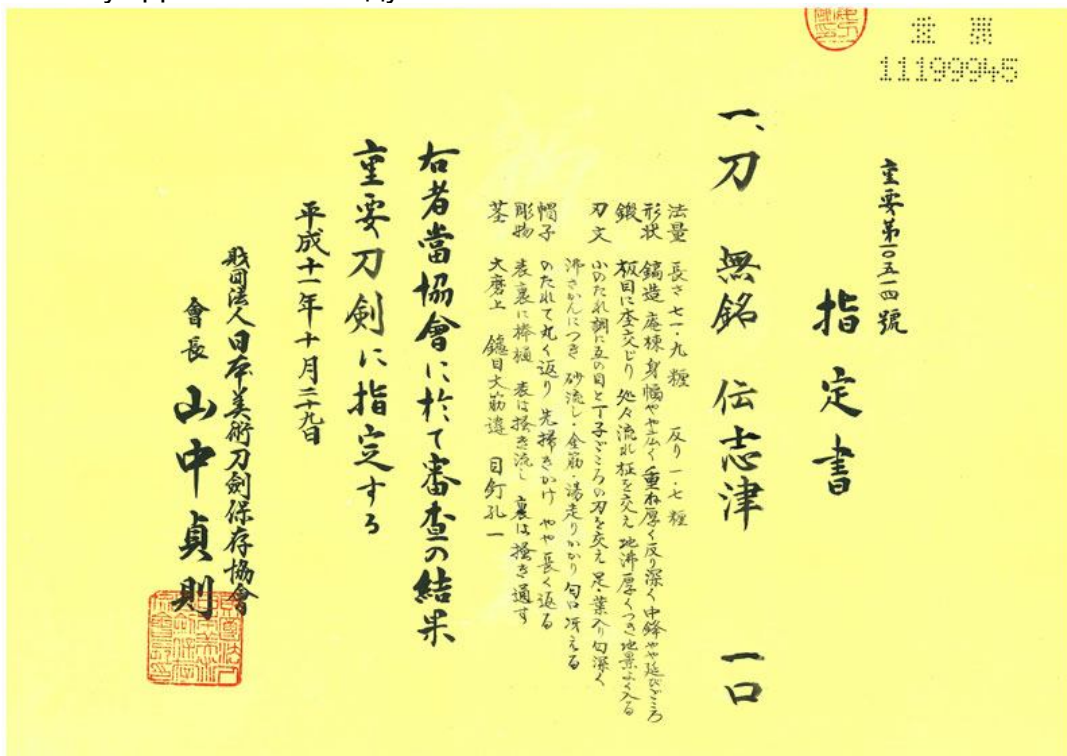 重要
11199945
重要第一〇五一四號
指定書
一、刀 無銘 伝志津 一口
法量 長さ 七一・九糎 反り 一・七糎
形状 鎬造 庵棟 身幅やや広く 重ね厚く 反り深く 中鋒やや延びごころ
鍛 板目に杢交じり 処々流れ柾を交え 地沸厚くつき 地景よく入る
刃文 小のたれ調に互の目と丁子ごころの刃を交え 足・葉入り 匂深く
沸さかんにつき 砂流し・金筋・湯走りかかり 匂口冴える
帽子 のたれて丸く返り 先掃きかけ やや長く返る
彫物 表裏に棒樋 表は掻き流し 裏は掻き通す
茎 大磨上 鑢目大筋違 目釘孔一
右者當協會に於て審査の結果
重要刀剣に指定する
平成十一年十月二十九日
財団法人日本美術刀劍保存協會
會長 山中貞則